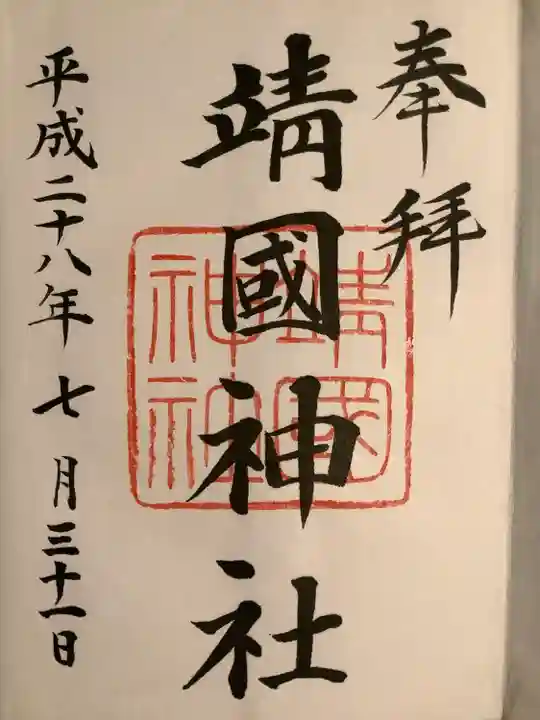 奉拝
靖國神社
靖國
神社
平成二十八年七月三十一日